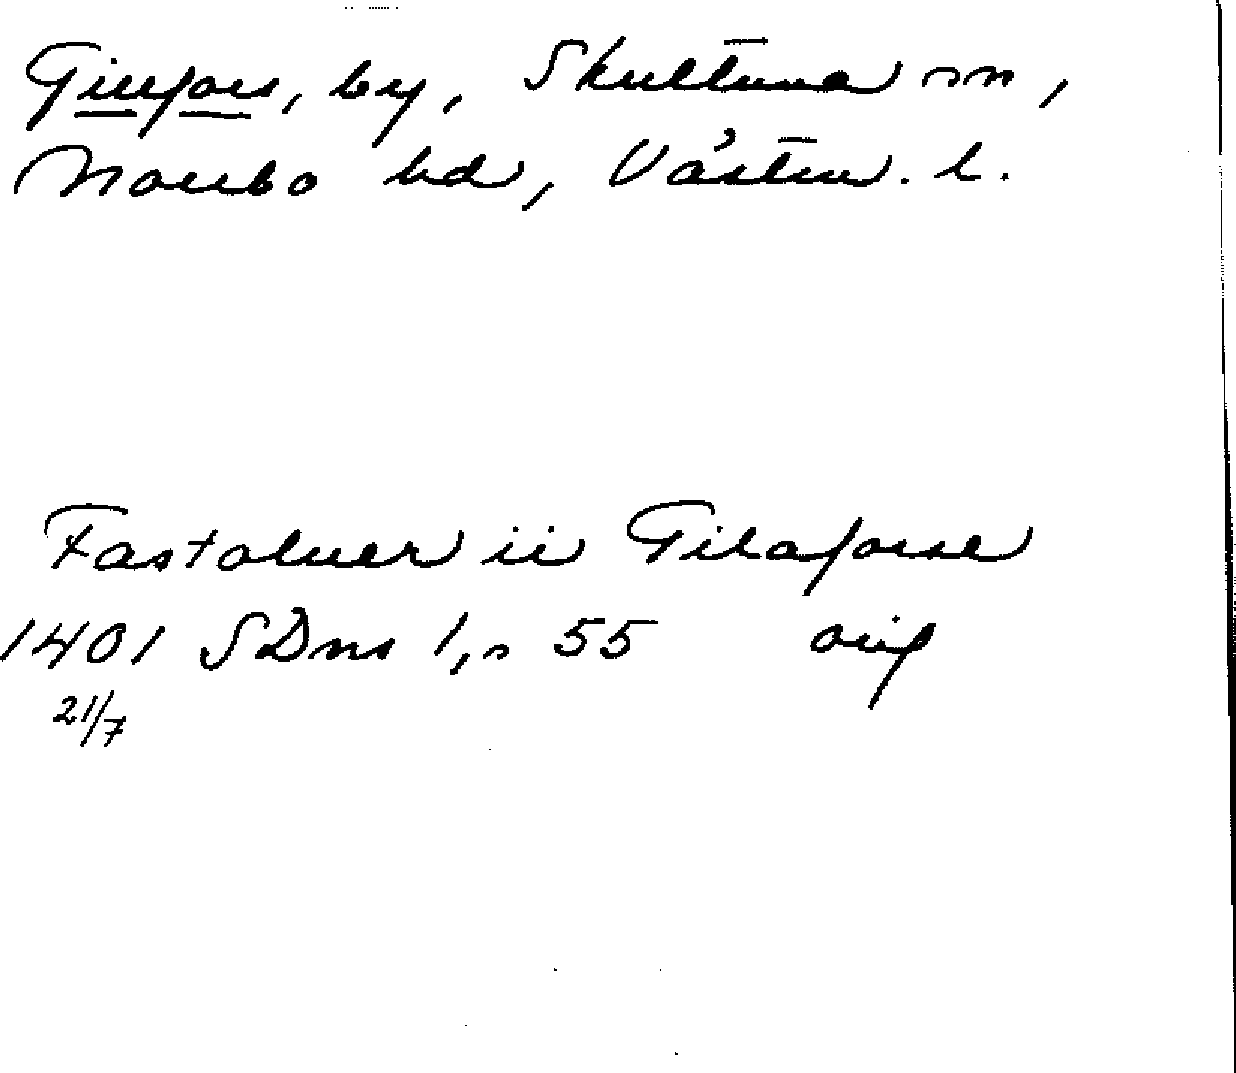 Gillfors, by, Skultuna sn,
Norrbo hd, Västm. l.
Fastoluer ii Gilaforse
1401 SDns 1, s 55 orig
21/7